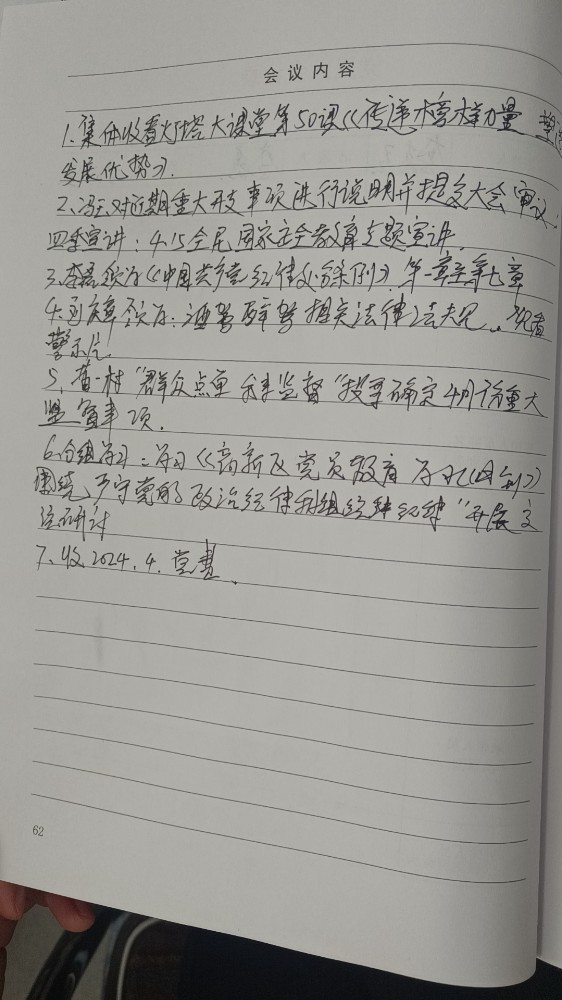 会议内容
1.集体收看灯塔大课堂第50课《传递榜样力量 塑造
发展优势》.
2、冯王对近期重大开支事项进行说明并提交大会审议.
四季宣讲:4.15全民国家安全教育专题宣讲
3.李磊领学《中国共产党纪律处分条例》第一章至第七章
4.领学:酒驾醉驾相关法律法规.观看
警示片
5、一村"群众点单 我来监督"投票确定4月份重大
监督事项.
6.分组学习:学习《高新区党员教育学习(四)》
围绕"严守党的政治纪律和组织纪律"开展交
流研讨
7、收2024.4.党费.
62